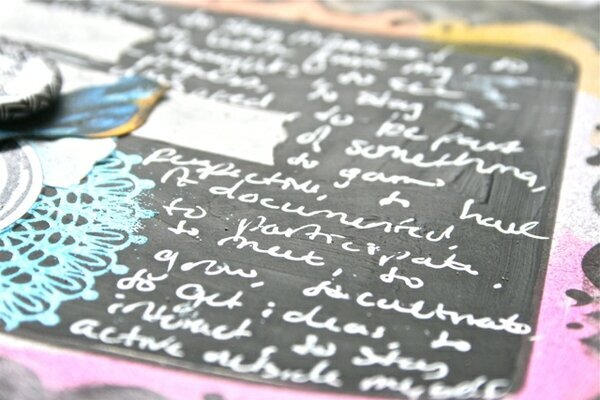 to stay
my
thoughts, to see
to stay
to be part
of something,
to gain
perspective, to have
it documented,
to participate,
to meet, to
grow, to cultivate
to get ideas, to
interact to stay
active outside myself